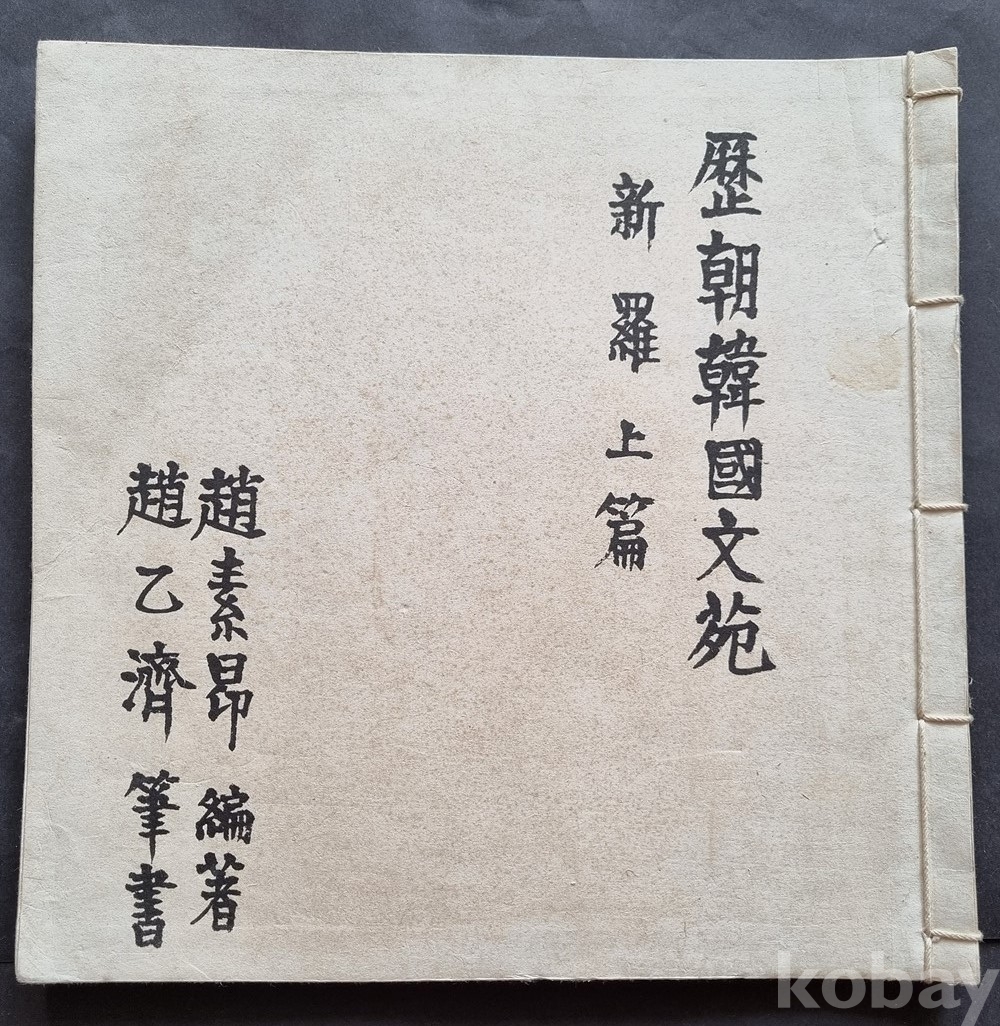 歷朝韓國文苑
新羅上篇
趙素昂 編著
趙乙濟 筆書
kobay